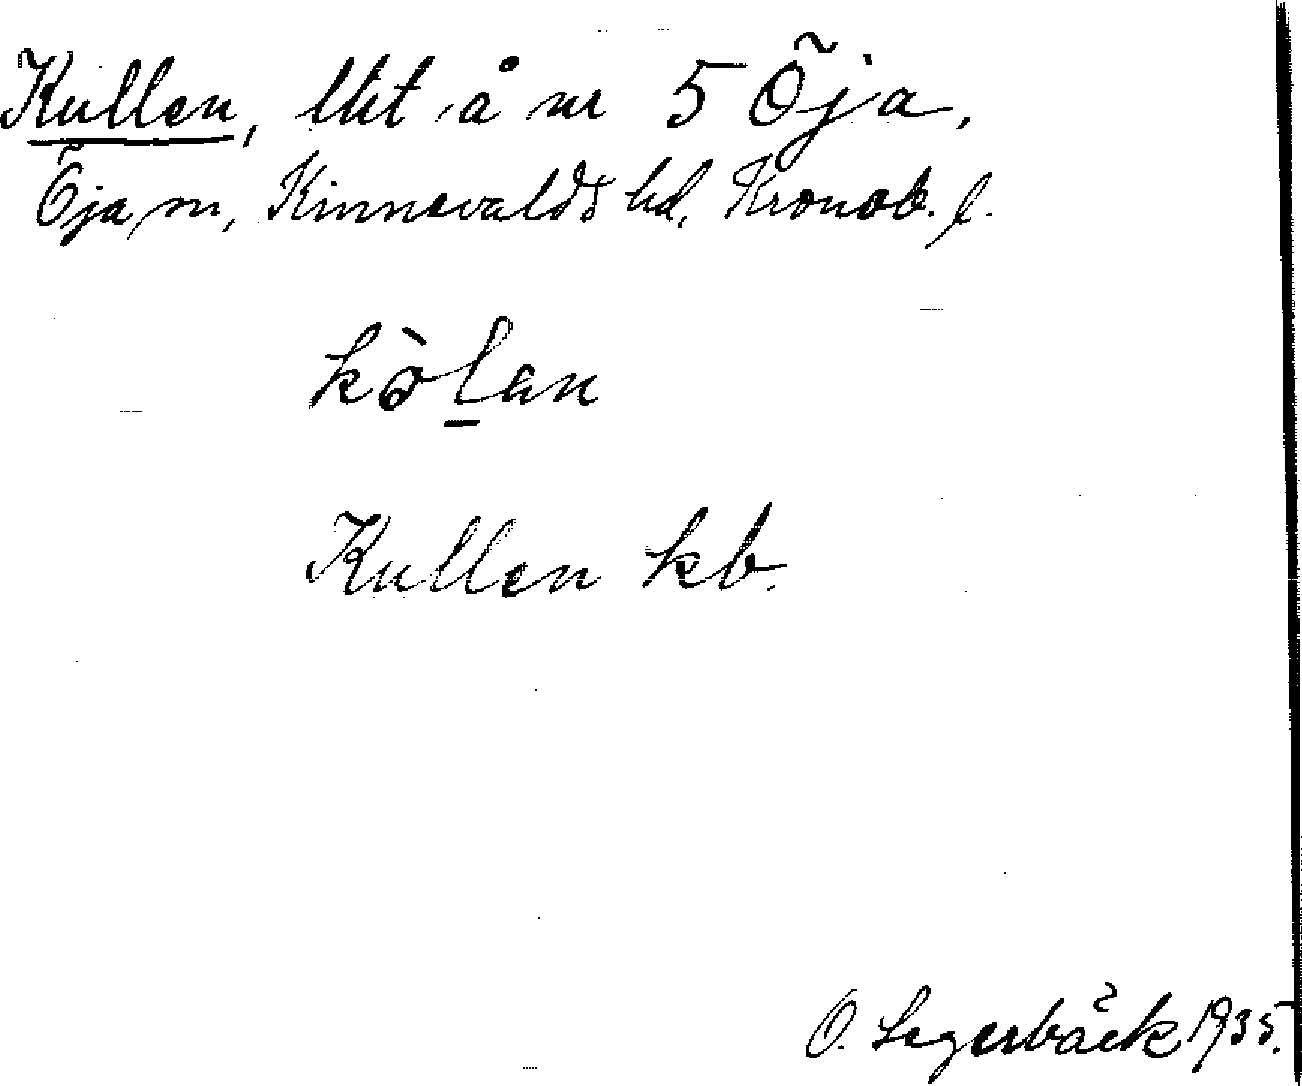 Kullen, lht å nr 5 Öja,
Öja sn, Kinnevalds hd, Kronob. l.
kòlan
Kullen kb.
O. Segerbäck 1935.